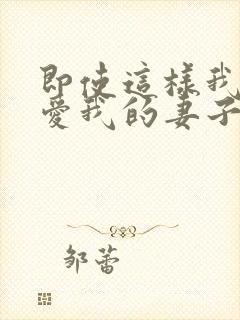 即使這樣我
愛我的妻子
邹蕾